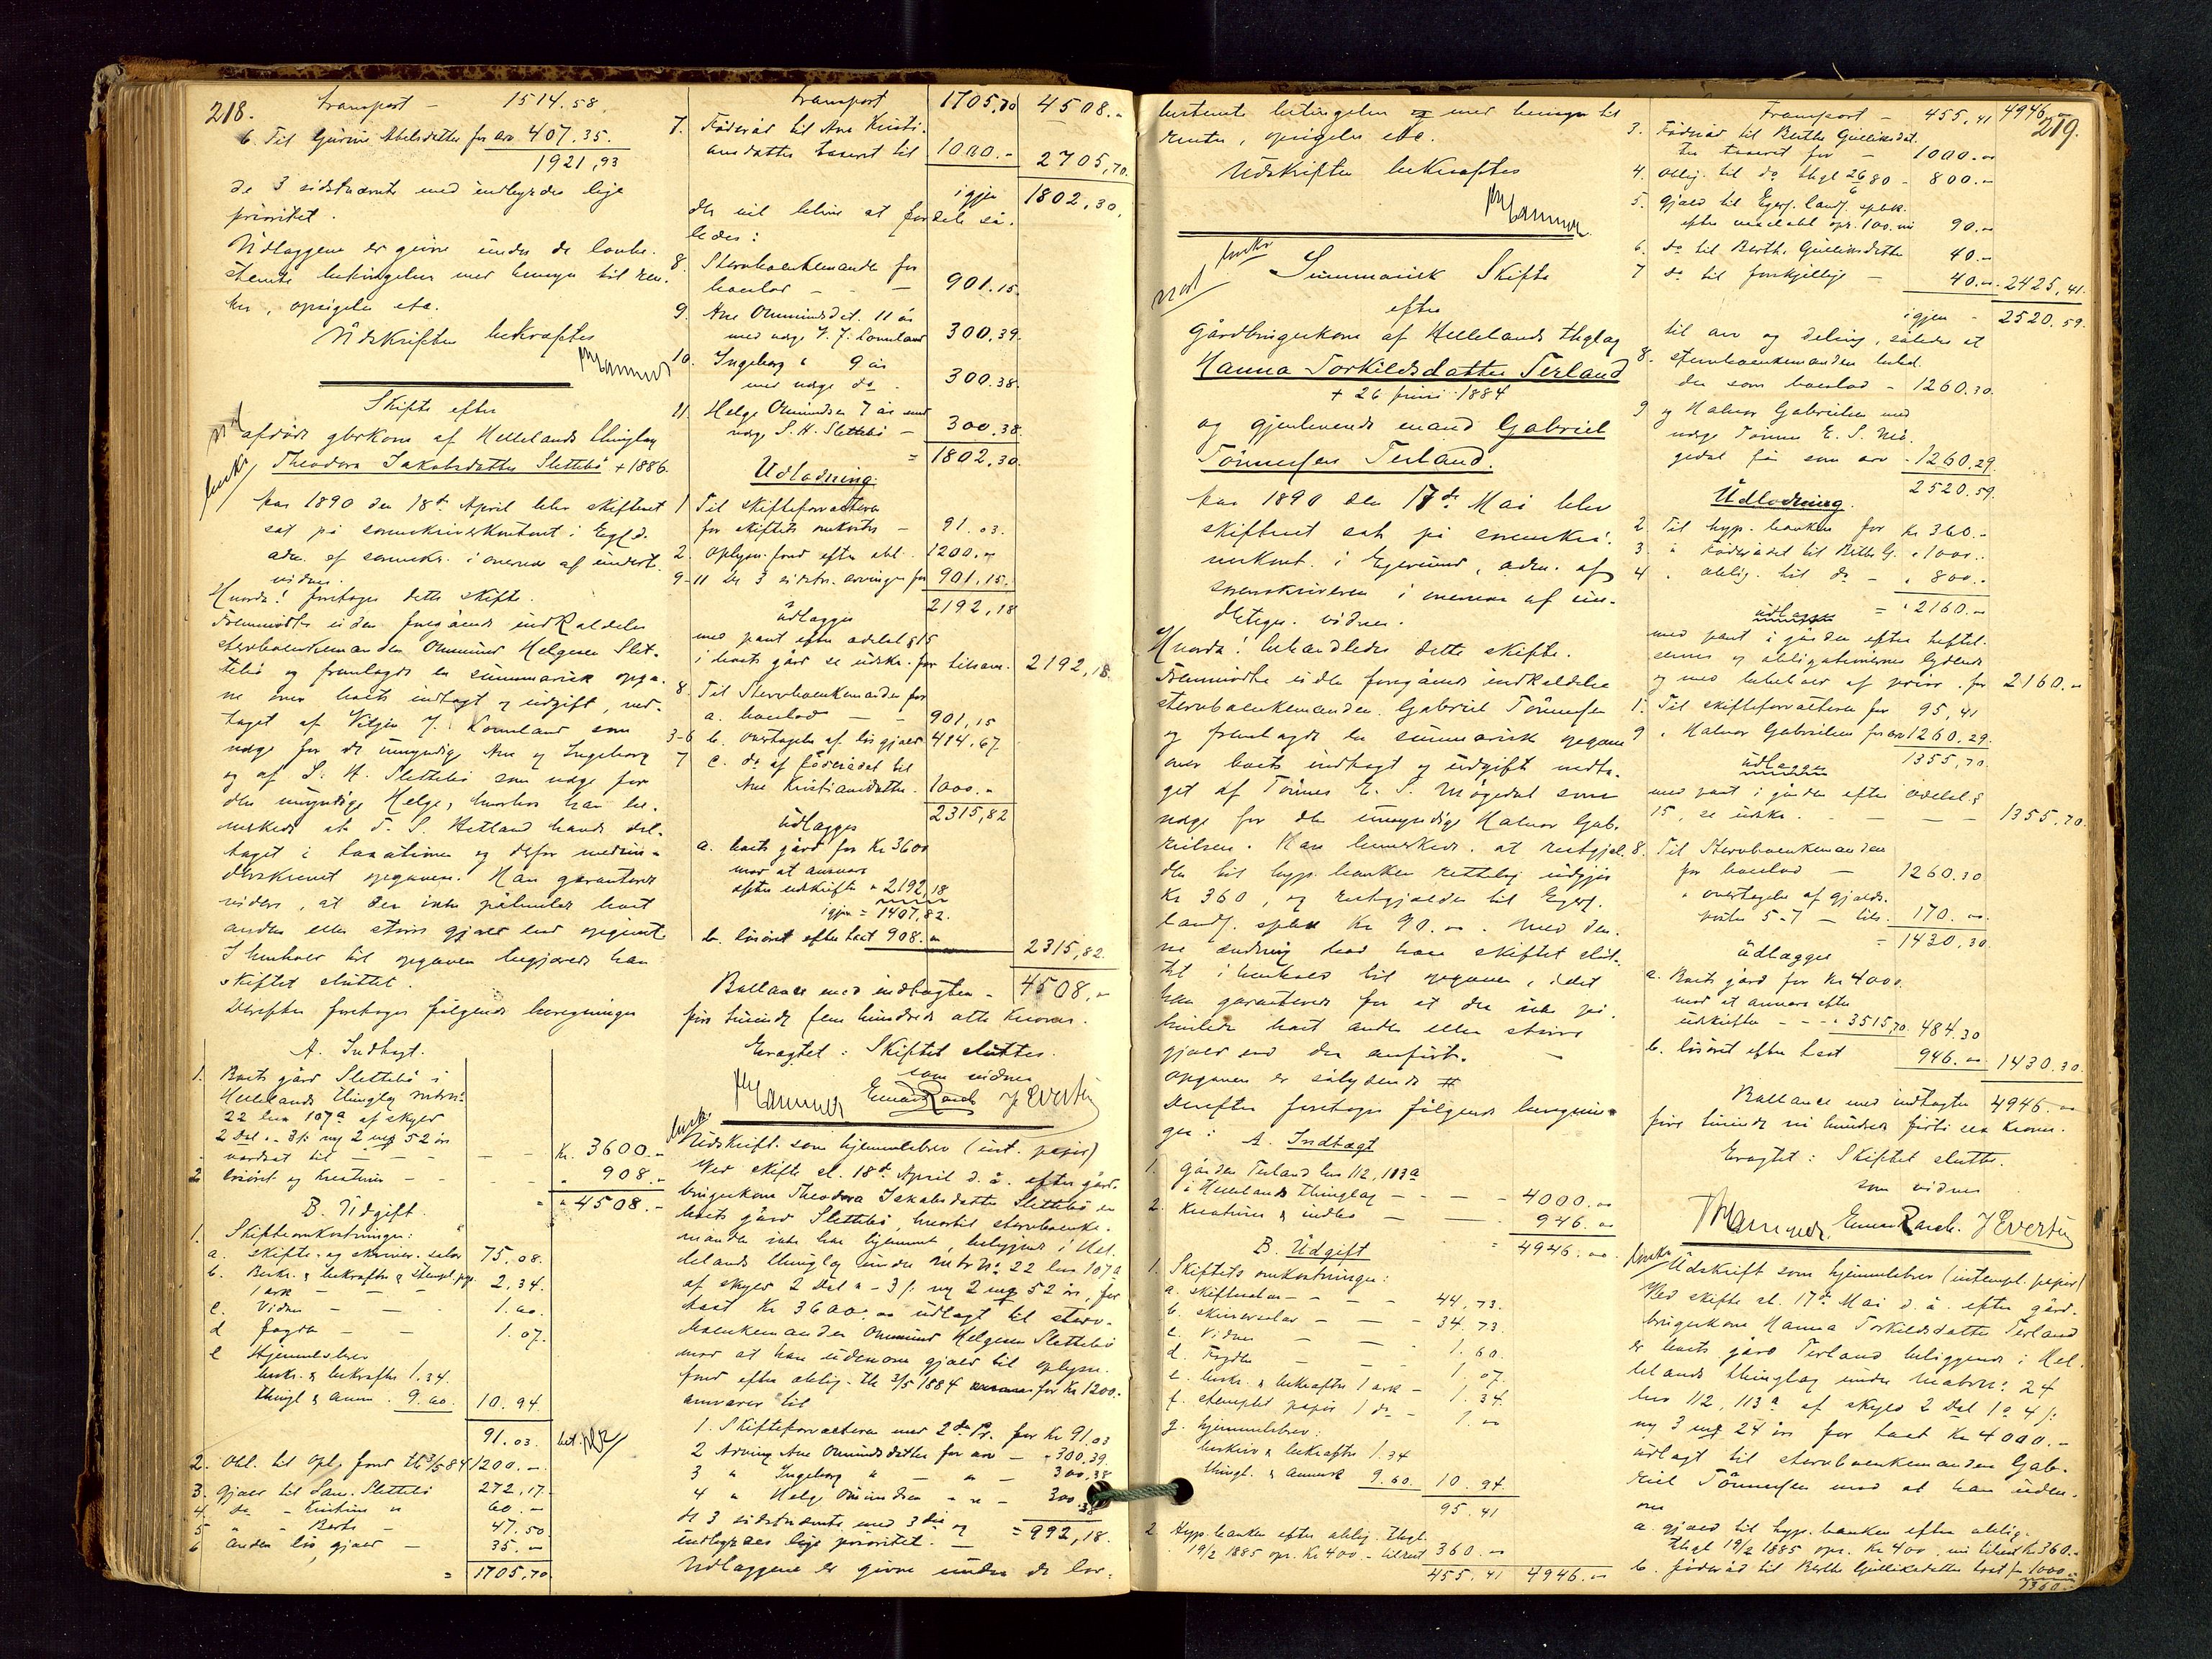 218.
transport – 1514.58.
6. Til Gurine Abelsdatter for arv 407.35.
1921,93
de 3 sidstnævnte med indbyrdes lige
prioritet.
Udlæggene er givne under de lovbe-
stemte betingelser med hensyn til ren-
ter, opsigelse etc.
Udskriften bekræftes
Skifte efter
afdøde gbrkone af Hellelands thinglag
Theodora Jakobsdatter Slettebö + 1886.
Aar 1890 den 18de April blev skifteret
sat på sorenskriverkontoret i Egersd.
adm. af sorenskr. i overvær af undert.
vidner.
Hvorda! foretoges dette skifte.
Fremmødte uden foregående indkaldelse
sterboenkemanden Ommund Helgesen Slet-
tebö og fremlagde en summarisk opga-
ve over boets indtægt og udgift, ved-
taget af Vitgin J. Lomeland som
værge for de umyndige Ane og Ingeborg
og af S. H. Slettebö som værge for
den umyndige Helge, hvorhos han be-
mærkede at T. S. Hetland havde del-
taget i taxationen og derfor medun-
derskrevet opgaven. Han garanterede
videre, at der ikke påhviler boet
anden eller større gjæld end opgivet.
I henhold til opgaven begjærede han
skiftet sluttet.
Derefter foretoges følgende beregninger
A. Indtægt.
1. Boets gård Slettebö i
Hellelands thinglag matrno
22 lno 107a af skyld
2 Dal. – 3 ß. ny 2 mrk 52 öre
vurderet til – – – Kr. 3600.–
2. Lösöret og kreaturer – – – " 908.–
= " 4508.–
B. Udgift.
1. Skifteomkostninger:
a. Skifte- og skriver-salær 75.08.
b. Beskr. & bekræftn & stempl. pap.
1 ark – – 2.34.
c. Vidner – – 1.60.
d. Fogden – – 1.07.
e Hjemmelsbrev
beskr. & bekræftn 1.34.
thingl & anm. 9.60. 10.94.
91.03.
2. Obl. til Opl. fond thl 3/5 84 1200.–
3. Gjæld til Sam. Slettebö 272,17.
4. do – Kristine " 60.–
5 " – Berte – 47.50
6 anden lös gjæld – 35.–
= 1705.70
transport 1705,70 4508.–
7. Föderåd til Ane Kristi-
ansdatter taxeret til 1000.– 2705,70.
igjen 1802,30.
der vil blive at fordele så-
ledes:
8. Sterboenkemanden for
boeslod – – 901.15.
9. Ane Ommundsdat. 11 år
med værge V. J. Lomeland 300,39.
10. Ingeborg " 9 år
med værge do – 300.38.
11. Helge Ommundsen 7 år med
værge S. H. Slettebö – 300.38.
= 1802.30.
Udlodning.
1 Til skifteforvalteren
for skiftets omkostn – 91.03.
2. Oplysn. fond efter obl. 1200.–
9-11 De 3 sidstn. arvinger for 901,15.
2192,18
udlægges
med pant efter odelsl § 15
i boets gård se udskr. for tilsam. 2192,18.
8. Til Sterboenkemanden for
a. boeslod – – 901,15
3-6 b. overtagelse af lös gjæld 414,67.
7 c. do af föderådet til
Ane Kristiansdatter. 1000.–
2315,82
udlægges
a. boets gård for Kr 3600
mod at ansvare
efter udskriften " 2192,18
igjen = 1407,82.
b. lösöret efter taxt 908.– 2315,82.
Ballance med indtægten – 4508.–
fire tusinde fem hundrede otte Kroner.
Eragtet: Skiftet sluttes.
som vidner
Udskrift som hjemmelsbrev (intt. papir)
Ved skifte sl. 18de April d. å. efter gård-
brugerkone Theodora Jakobsdatter Slettebö er
boets gård Slettebö, hvortil sterboenke-
manden ikke har hjemmel, beliggende i Hel-
lelands thinglag under matrno 22 lno 107a
af skyld 2 Dal " – 3 ß. ny 2 mrk 52 öre, for
taxt Kr 3600.– udlagt til sterv-
boenkemanden Ommund Helgesen Slettebö
mod at han udenom gjæld til oplysn.
fond efter oblig. thl 3/5 1884 for Kr 1200.–
ansvarer til
1. Skifteforvalteren med 2den pr. for Kr 91.03
2 Arving Ane Ommundsdatter for arv – " 300,39.
3 " Ingeborg " – " – 300,38
4 " Helge Ommundsen – " – 300.38
= 992,18.
de 3 sidstnævnte med 3die og
indbyrdes lige prioritet.
Udlæggene er givne under de lov-
219.
bestemte betingelser og med hensyn til
renter, opsigelse etc.
Udskriften bekræftes
Summarisk Skifte
efter
gårdbrugerkone af Hellelands thglag
Hanna Torkildsdatter Terland
+ 26 juni 1884
og gjenlevende mand Gabriel
Tönnesen Terland.
Aar 1890 den 17de Mai blev
skifteret sat på sorenskri-
verkont. i Egersund, adm. af
sorenskriveren i overvær af un-
dertegn. vidner.
Hvorda! behandledes dette skifte.
Fremmødte uden foregående indkaldelse
sterboenkemanden Gabriel Tönnesen
og fremlagde en summarisk opgave
over boets indtægt og udgift vedta-
get af Tönnes E. S. Mögedal som
værge for den umyndige Halvor Gab-
rielsen. Han bemærkede, at restgjæl-
den til hyp. banken rettelig udgjör
Kr 360, og restgjælden til Egers.
landss. spbk Kr 90.–. Med den-
ne ændring bad han skiftet slut-
tet i henhold til opgaven, idet
han garanterede for at der ikke på-
hvilede boet anden eller større
gjæld end den anførte. –
Opgaven er sålydende #
Derefter foretoges følgende beregnin-
ger: A. Indtægt
1. Gården Terland lno 112, 113a
i Hellelands thinglag – – – 4000.–
2. Kreaturer & indbo – – 946.–
= 4946.–
B. Udgift
1. Skiftets omkostninger:
a. skiftesalær – – – 44,73.
b. skriversalær – – – 34.73
c. Vidner – – – 1.60.
d. Fogden – – 1.07.
e. beskr. & bekræftn 1 ark – 1.34
f. stemplet papir 1 do – 1.–
g. hjemmelsbrev:
beskriv & bekræftn 1.34
thingl. & anmærk 9.60. 10.94
95.41
2 Hyp. banken efter oblig. thgl.
19/2 1885 opr. Kr 400.– tilrest 360.–
455.41 4946.–
Transport – 455,41 4946.–
3. Föderåd til Berthe Gulliksdat-
ter taxeret for – 1000.–
4. Oblig. til do thgl 26/6 80 – 800.–
5. Gjæld til Egers. lands. spbk.
efter vexelobl opr. 100. nu 90.–
6. do til Berthe Gulliksdatter 40.–
7 do til forskjellige – 40.– 2425,41.
igjen – 2520.59.
til arv og deling, således at
8. sterboenkemanden behol-
der som boeslod – 1260.30.
9 og Halvor Gabrielsen med
værge Tönnes E. S. Mö-
gedal får som arv – 1260.29.
2520.59.
Udlodning.
2. Til hyp. banken for Kr 360.–
3. " Föderådet til Berthe G. " 1000.–
4 " oblig. til do – " 800.–
= " 2160.–
udlægges
med pant i gården efter heftel-
sernes og obligationernes lydende
og med bibehold af prior. for 2160.–
1. Til skifteforvalteren for 95,41
9 " Halvor Gabrielsen for arv 1260.29.
1355,70.
udlægges
med pant i gården efter odelsl. §
15, se udskr. – – – – 1355.70.
8. Til Sterboenkemanden
for boeslod – 1260.30
" overtagelse af gjælds-
poster 5-7 – tils. 170.–
= 1430.30.
udlægges
a. Boets gård for Kr 4000.
mod at ansvare efter
udskriften – – " 3515,70 484.30
b. lösöret efter taxt 946.– 1430.30.
Ballance med indtægten 4946.–
fire tusinde ni hundrede førti sex Kroner.
Eragtet: Skiftet sluttes.
som vidner
Udskrift som hjemmelsbrev (intempl. papir)
Ved skifte sl. 17de Mai d. å. efter gård-
brugerkone Hanna Torkildsdatter Terland
er boets gård Terland beliggende i Hel-
lelands thinglag under matrno: 24
lno 112, 113a af skyld 2 Dal 1 o 4 ß.
ny 3 mrk 24 öre for taxt Kr 4000.–
udlagt til sterboenkemanden Gab-
riel Tönnesen mod at han uden-
om
a. gjæld til hyp. banken efter oblig.
thgl 19/2 1885 opr. Kr 400. nu tilrest Kr 360.–
b. föderåd til Berthe Gulliksdatter taxt for 1000.–
1360.–